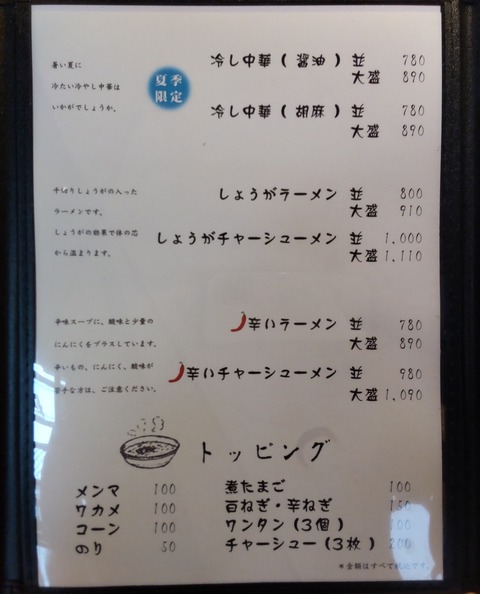 暑い夏に
冷たい冷やし中華は
いかがでしょうか。
夏季
限定
冷し中華(醤油)並 780
大盛 890
冷し中華(胡麻)並 780
大盛 890
千切りしょうがの入った
ラーメンです。
しょうがの効果で体の芯
から温まります。
しょうがラーメン 並 800
大盛 910
しょうがチャーシューメン 並 1,000
大盛 1,110
辛味スープに、酸味と少量の
にんにくをプラスしています。
辛いもの、にんにく、酸味が
苦手な方は、ご注意ください。
辛いラーメン 並 780
大盛 890
辛いチャーシューメン 並 980
大盛 1,090
トッピング
メンマ 100
ワカメ 100
コーン 100
のり 50
煮たまご 100
白ねぎ・辛ねぎ 150
ワンタン(3個) 100
チャーシュー(3枚) 200
*金額はすべて税込です。